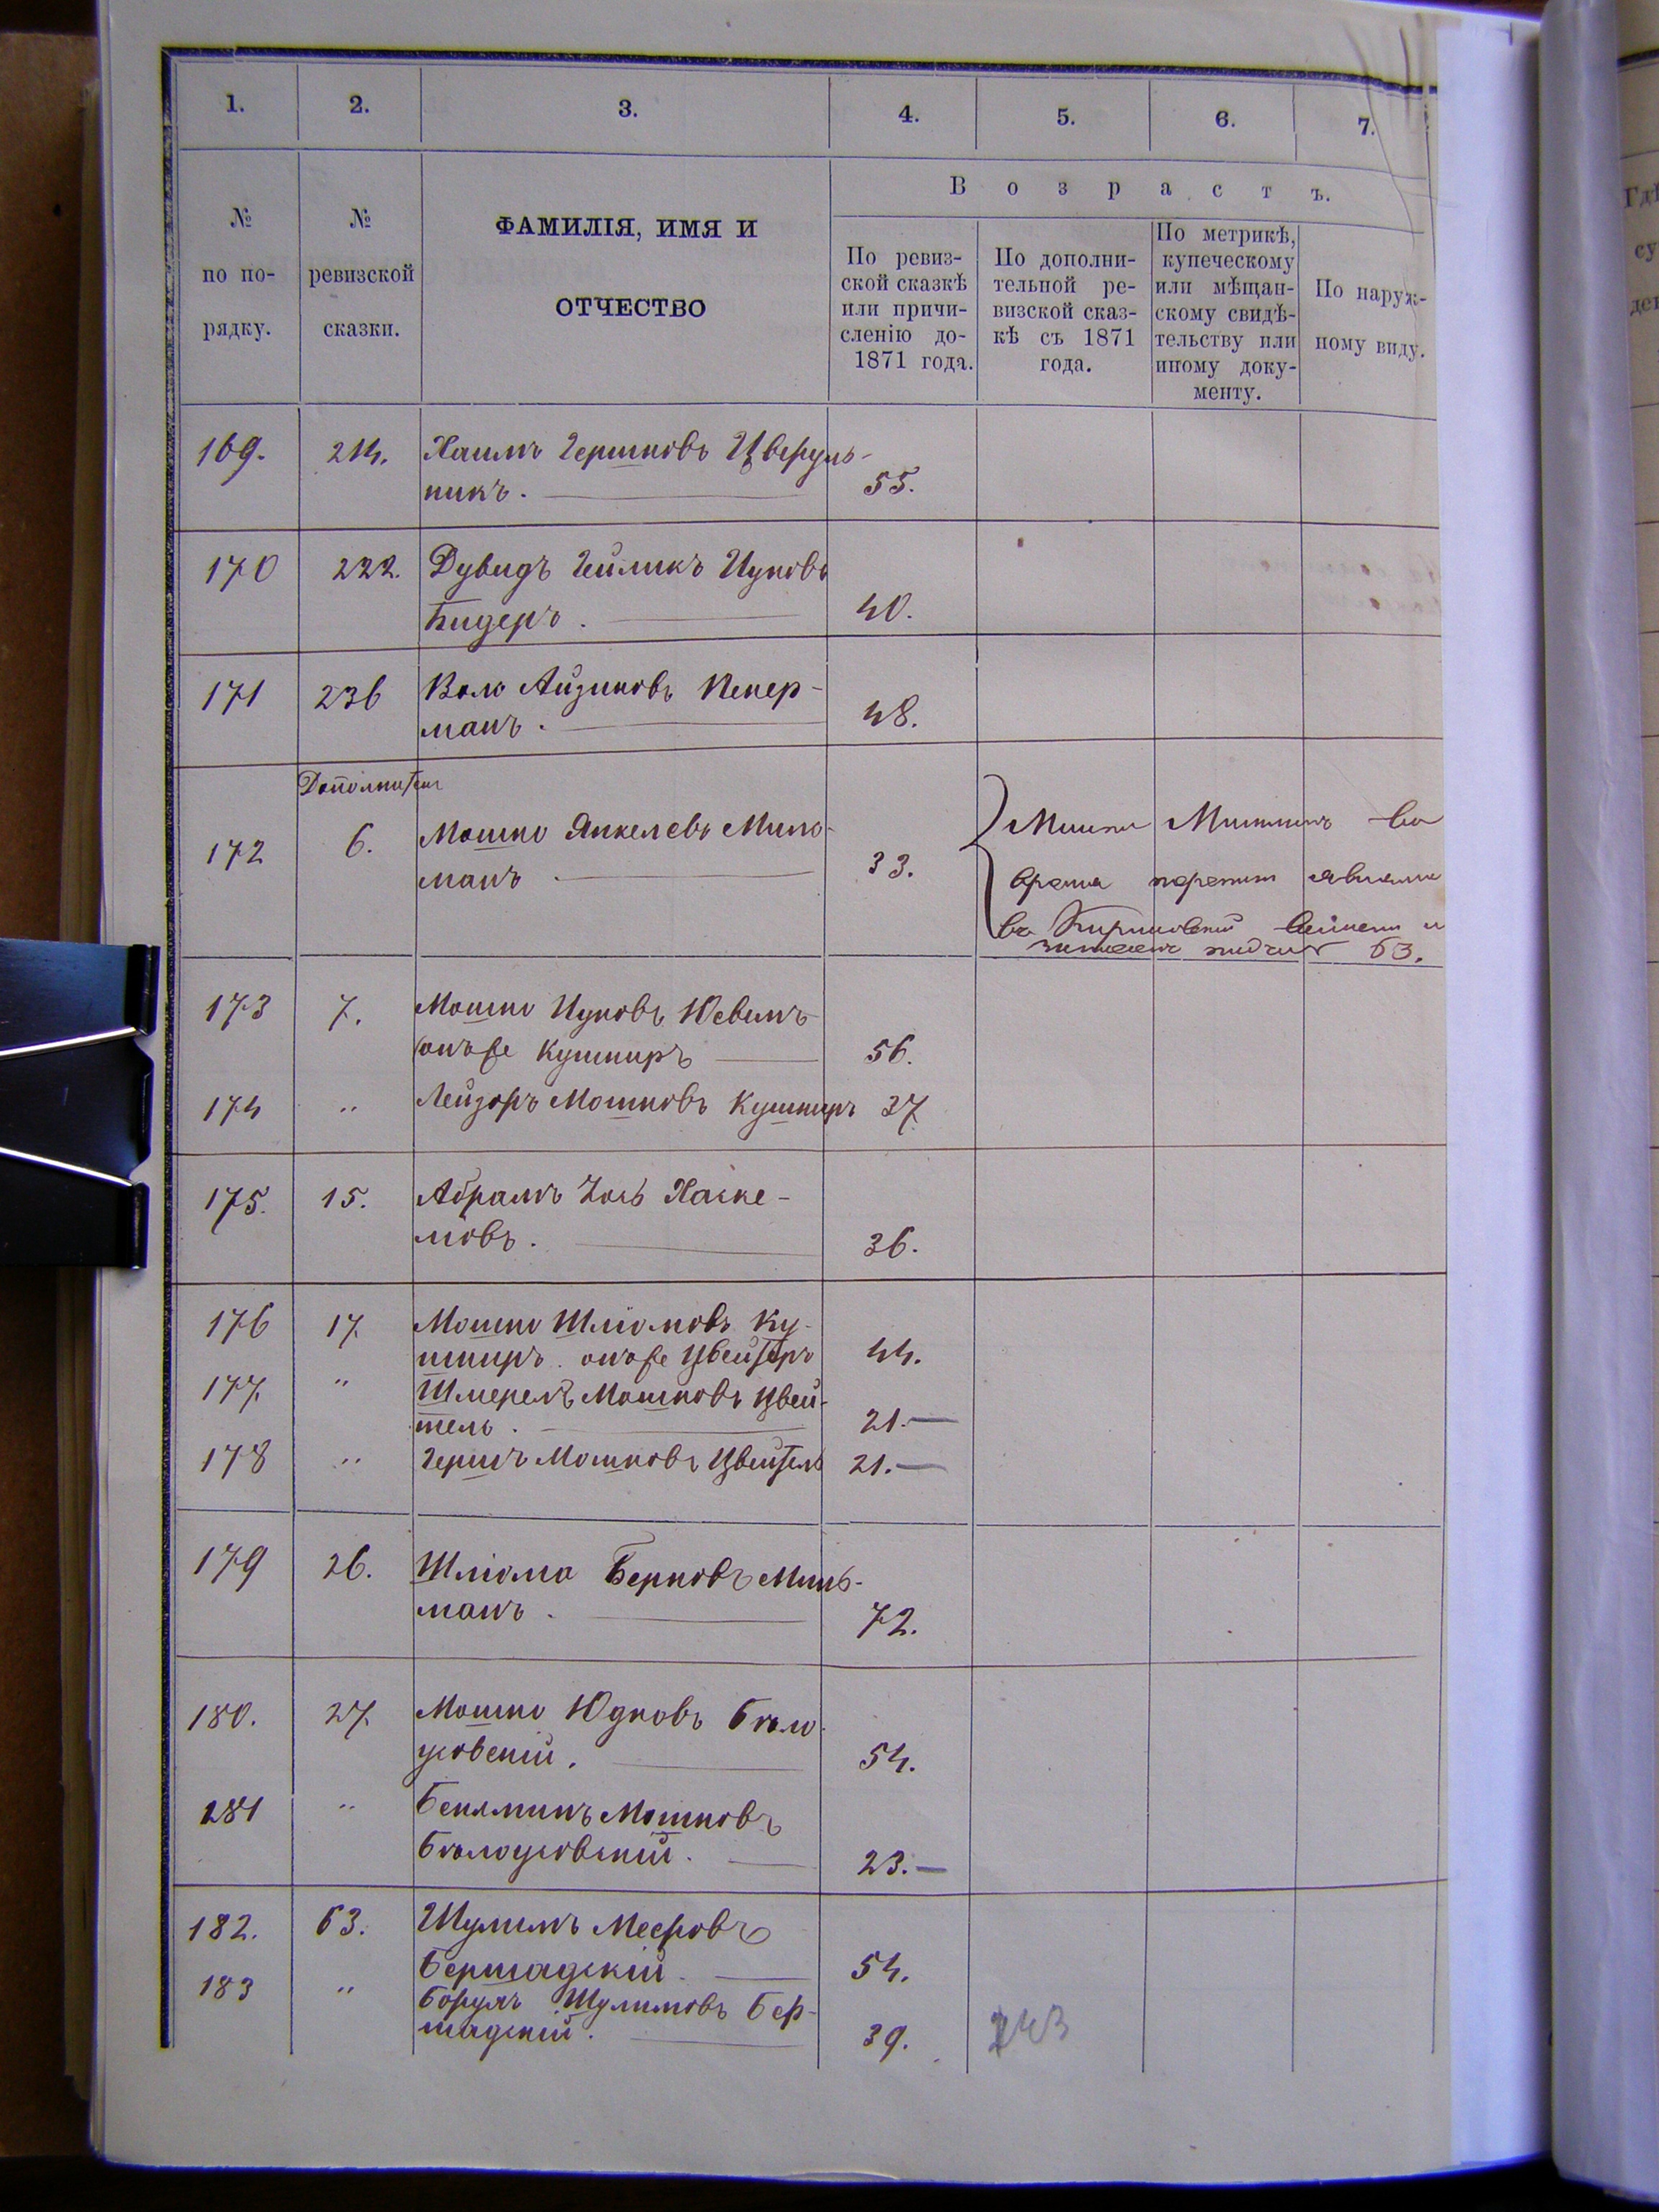 1. 2. 3. 4. 5. 6. 7.
В о з р а с т ъ.
№ по по-рядку.
№ ревизской сказки.
ФАМИЛІЯ, ИМЯ И
ОТЧЕСТВО
По ревиз-
ской сказкѣ
или причи-
сленію до-
1871 года.
По дополни-
тельной ре-
визской сказ-
кѣ съ 1871
года.
По метрикѣ,
купеческому
или мѣщан-
скому свидѣ-
тельству или
иному доку-
менту.
По наруж-
ному виду.
169. 214. Хаимъ Гершковъ
никъ. 55.
170 222. Дувидъ Ицковъ
Бидеръ. 40.
171 236 Волю Айзиковъ Пекер-
манъ. 48.
172 6. Мошко Янкелевъ Миль-
манъ 33.
63.
173 7. Мошко Ицковъ
онъ же Кушниръ 56.
174 " Лейзоръ Мошковъ Кушниръ 37.
175. 15. Абрамъ Хаске-
левъ. 36.
176 17 Мошко Шліомовъ Ку-
шниръ онъ же 44.
177. " Шмерель Мошковъ Цвей-
тель. 21.—
178 " Гершъ Мошковъ Цвейтель 21.—
179 26. Шліома Берковъ Миль-
манъ. 72.
180. 27. Мошко Юдковъ Бѣло-
церковскій. 54.
281 " Беняминъ Мошковъ
Бѣлоцерковскій. 23.—
182. 63. Шулимъ Мееровъ
Бершадскій. 54.
183 " Борухъ Шулимовъ Бер-
шадскій. 39.
243